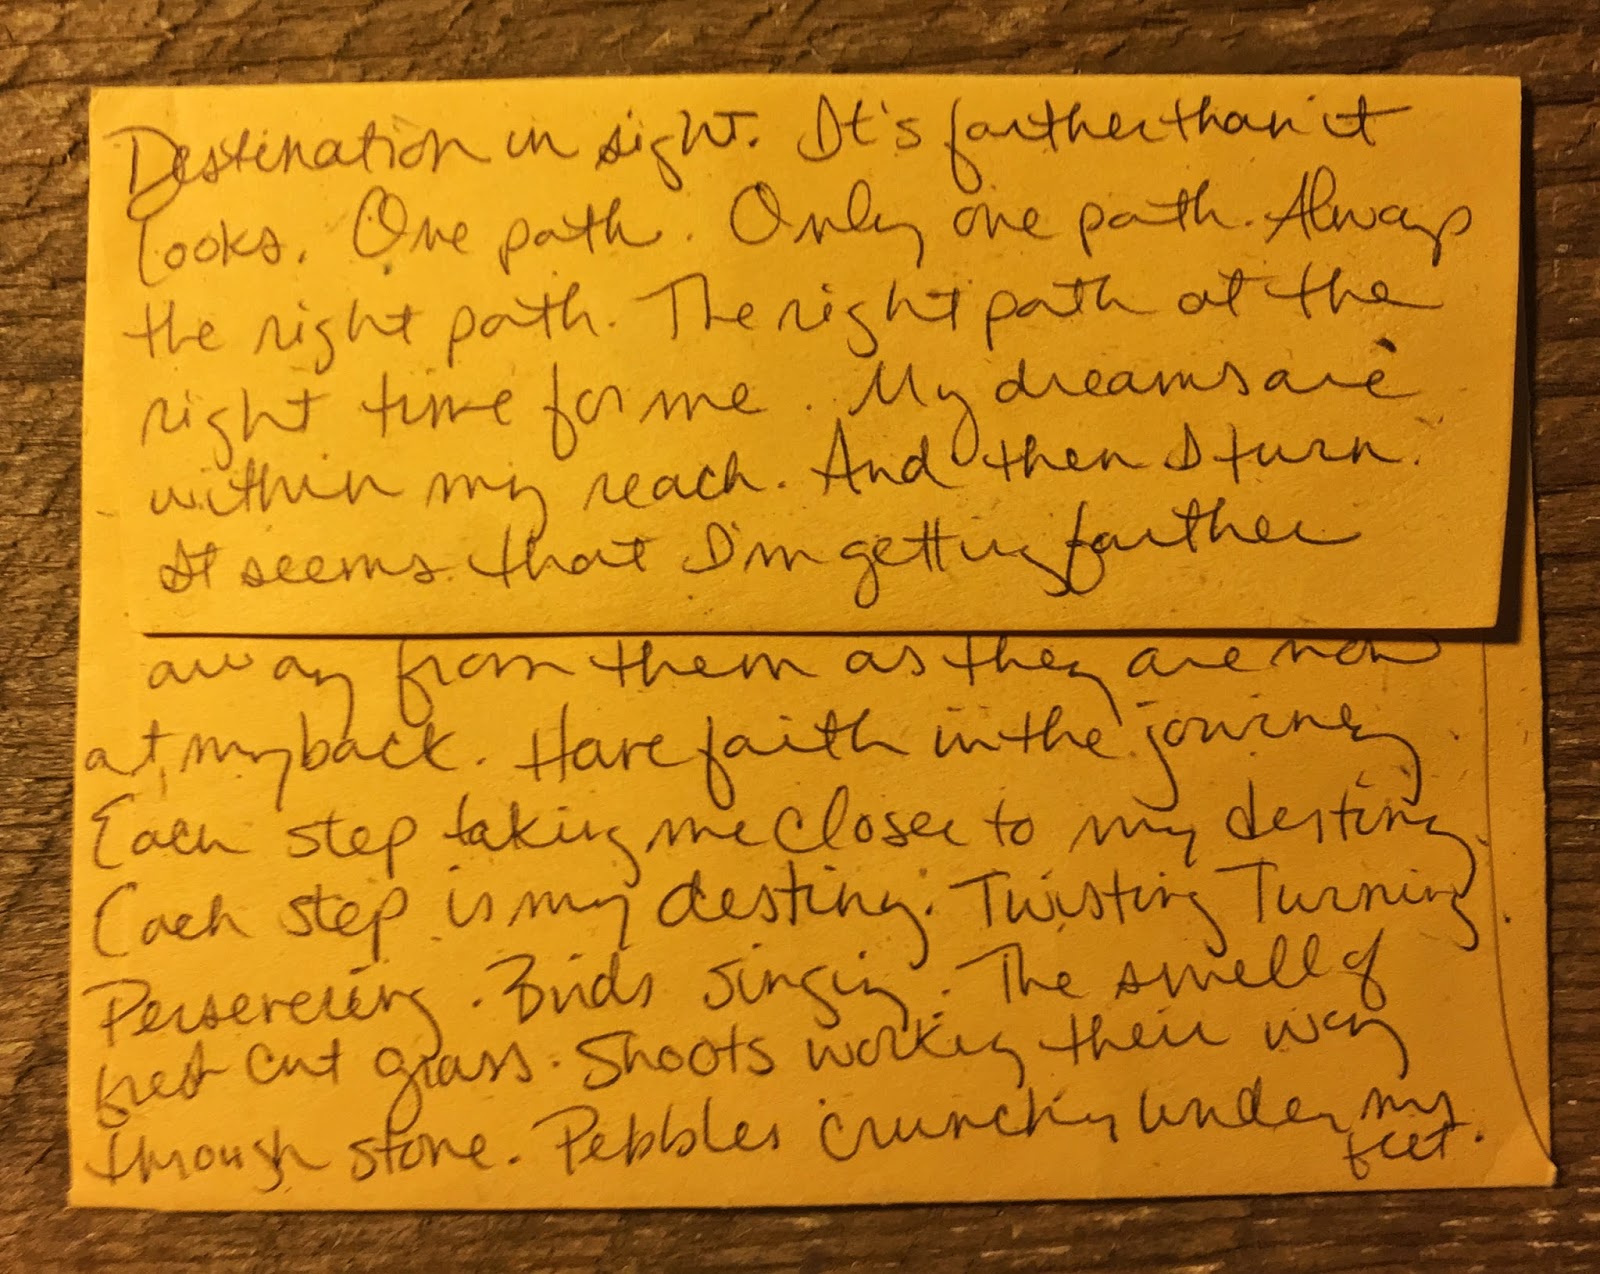 Destination in sight. It's farther than it
looks. One path. Only one path. Always
the right path. The right path at the
right time for me. My dreams are
within my reach. And then I turn.
It seems that I'm getting farther
away from them as they are now
at my back. Have faith in the journey.
Each step taking me closer to my destiny.
Each step is my destiny. Twisting Turning.
Persevering. Birds singing. The smell of
fresh cut grass. Shoots working their way
through stone. Pebbles crunching under my
feet.